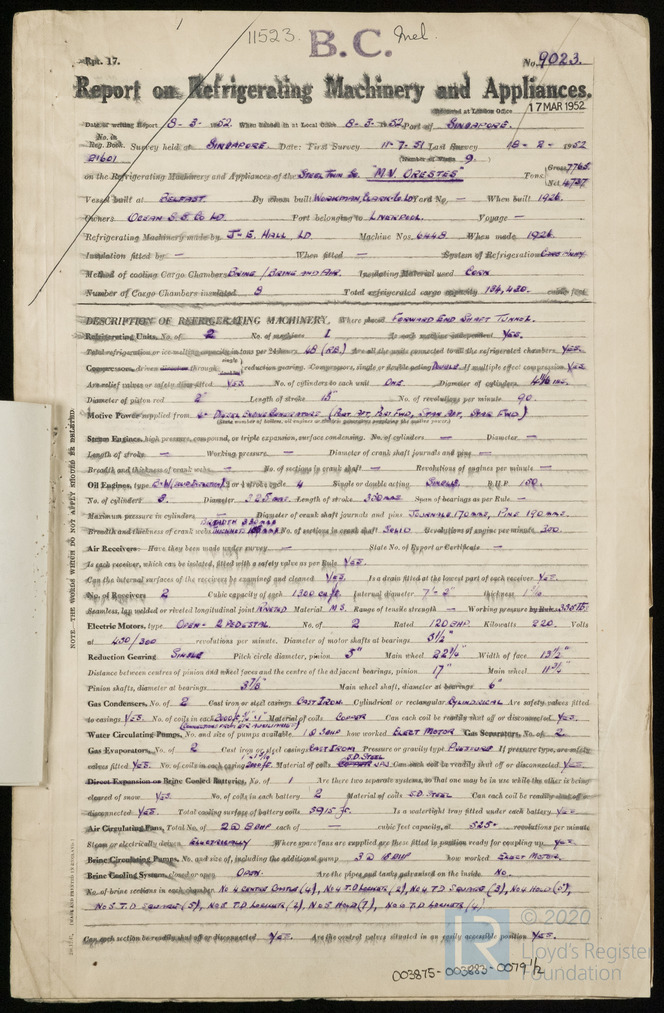 11523. B.C. Mel.
Rpt. 17. No. 9023.
Report on Refrigerating Machinery and Appliances.
Received at London Office 17 MAR 1952
Date of writing Report 8-3-1952. When handed in at Local Office 8-3-1952. Port of SINGAPORE.
No. in Reg. Book. 21601 Survey held at SINGAPORE. Date: First Survey 11-7-51 Last Survey 18-2-1952
(Number of Visits 9.)
on the Refrigerating Machinery and Appliances of the STEEL TWIN Sc. "M.V. ORESTES" Tons Gross 7765 Net 4737
Vessel built at BELFAST. By whom built WORKMAN, CLARK & Co Ld Yard No. — When built 1926.
Owners OCEAN S.S. Co LD Port belonging to LIVERPOOL. Voyage —
Refrigerating Machinery made by J & E. HALL, LD Machine Nos. 6448. When made 1926.
Insulation fitted by — When fitted — System of Refrigeration
Method of cooling Cargo Chambers BRINE / BRINE AND AIR. Insulating Material used CORK
Number of Cargo Chambers insulated 8 Total refrigerated cargo capacity 136,430. cubic feet
DESCRIPTION OF REFRIGERATING MACHINERY. Where placed FORWARD END SHAFT TUNNEL.
Refrigerating Units, No. of 2 No. of machines 1 Is each machine independent YES.
Total refrigeration or ice-melting capacity in tons per 24 hours 48 (R.B.) Are all the units connected to all the refrigerated chambers YES.
Compressors, driven direct through single reduction gearing. Compressors, single or double acting DOUBLE If multiple effect compression YES
Are relief valves or safety discs fitted YES. No. of cylinders to each unit ONE Diameter of cylinders
Diameter of piston rod 2" Length of stroke 15" No. of revolutions per minute 90.
Motive Power supplied from 4- DIESEL ENGINE GENERATORS (PORT AFT, PORT FWD, STAR AFT, STAR FWD)
(State number of boilers, oil engines or electric generators supplying the motive power)
Steam Engines, high pressure, compound, or triple expansion, surface condensing. No. of cylinders — Diameter —
Length of stroke — Working pressure — Diameter of crank shaft journals and pins —
Breadth and thickness of crank webs — No. of sections in crank shaft — Revolutions of engines per minute —
Oil Engines, type 2 or 4 stroke cycle 4 Single or double acting SINGLE B.H.P. 150.
No. of cylinders 3. Diameter 325 mm. Length of stroke 350 mm Span of bearings as per Rule —
Maximum pressure in cylinders — Diameter of crank shaft journals and pins JOURNALS. 170 mms, PINS 190 mms.
Breadth and thickness of crank webs No. of sections in crank shaft SOLID Revolutions of engine per minute 300.
Air Receivers:- Have they been made under survey — State No. of Report or Certificate —
Is each receiver, which can be isolated, fitted with a safety valve as per Rule YES.
Can the internal surfaces of the receivers be examined and cleaned YES. Is a drain fitted at the lowest part of each receiver YES.
No. of Receivers 2 Cubic capacity of each Internal diameter thickness 1 1/16
Seamless, lap welded or riveted longitudinal joint RIVETED Material M.S. Range of tensile strength — Working pressure by Rules
Electric Motors, type OPEN- 2 PEDESTAL. No. of 2 Rated 120 BHP. Kilowatts 220. Volts
at 450/300 revolutions per minute. Diameter of motor shafts at bearings 3½"
Reduction Gearing SINGLE Pitch circle diameter, pinion 5" Main wheel 22¼" Width of face 13½"
Distance between centres of pinion and wheel faces and the centre of the adjacent bearings, pinion 17" Main wheel
Pinion shafts, diameter at bearings 3⅞" Main wheel shaft, diameter at bearings 6"
Gas Condensers, No. of 2 Cast iron or steel casings CAST IRON Cylindrical or rectangular CYLINDRICAL Are safety valves fitted
to casings YES. No. of coils in each Material of coils COPPER Can each coil be readily shut off or disconnected YES.
Water Circulating Pumps, No. and size of pumps available how worked ELECT MOTOR Gas Separators, No. of 2
Gas Evaporators, No. of 2 Cast iron or steel casings CAST IRON Pressure or gravity type PRESSURE If pressure type, are safety
valves fitted YES. No. of coils in each casing Material of coils S.D. STEEL Can each coil be readily shut off or disconnected YES
Direct Expansion or Brine Cooled Batteries, No. of 1 Are there two separate systems, so that one may be in use while the other is being
cleared of snow YES. No. of coils in each battery 2 Material of coils S.D. STEEL Can each coil be readily shut off or
disconnected YES. Total cooling surface of battery coils 5915 ft. Is a watertight tray fitted under each battery YES
Air Circulating Fans, Total No. of 2 @ 8 BHP each of — cubic feet capacity, at 525 revolutions per minute
Steam or electrically driven ELECTRICALLY Where spare fans are supplied are these fitted in position ready for coupling up YES
Brine Circulating Pumps, No. and size of, including the additional pump 3 @ 18 BHP how worked ELECT MOTOR.
Brine Cooling System, closed or open OPEN. Are the pipes and tanks galvanised on the inside NO.
No. of brine sections in each chamber No 4 CENTRE CASTLE (4), No 4 T.D LOCKER (2), No 4 T.D SQUARE (3), No 4 HOLD (5),
No 5 T.D SQUARE (5), No 5 T.D LOCKER (2), No 5 HOLD (7), No 6 T.D LOCKER (4)
Can each section be readily shut off or disconnected YES. Are the control valves situated in an easily accessible position YES.
NOTE. THE WORDS WHICH DO NOT APPLY SHOULD BE DELETED.
003875-003883-0079 ½
LR © 2020
Lloyd's Register
Foundation